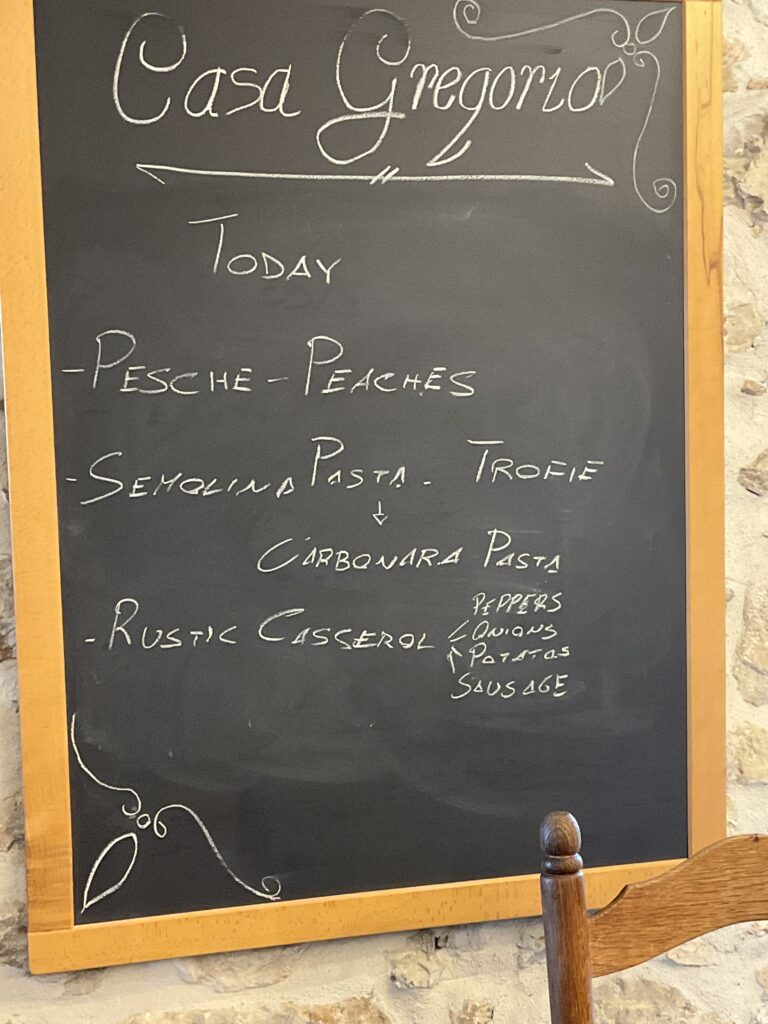 Casa Gregorio
TODAY
- PESCHE - PEACHES
- SEMOLINA PASTA - TROFIE
↓
CARBONARA PASTA
PEPPERS
- RUSTIC CASSEROL < ONIONS
POTATOS
SAUSAGE